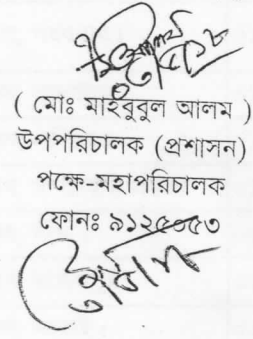 ( মোঃ মাহবুবুল আলম )
উপপরিচালক (প্রশাসন)
পক্ষে-মহাপরিচালক
ফোনঃ ৯১২৫০৫৩